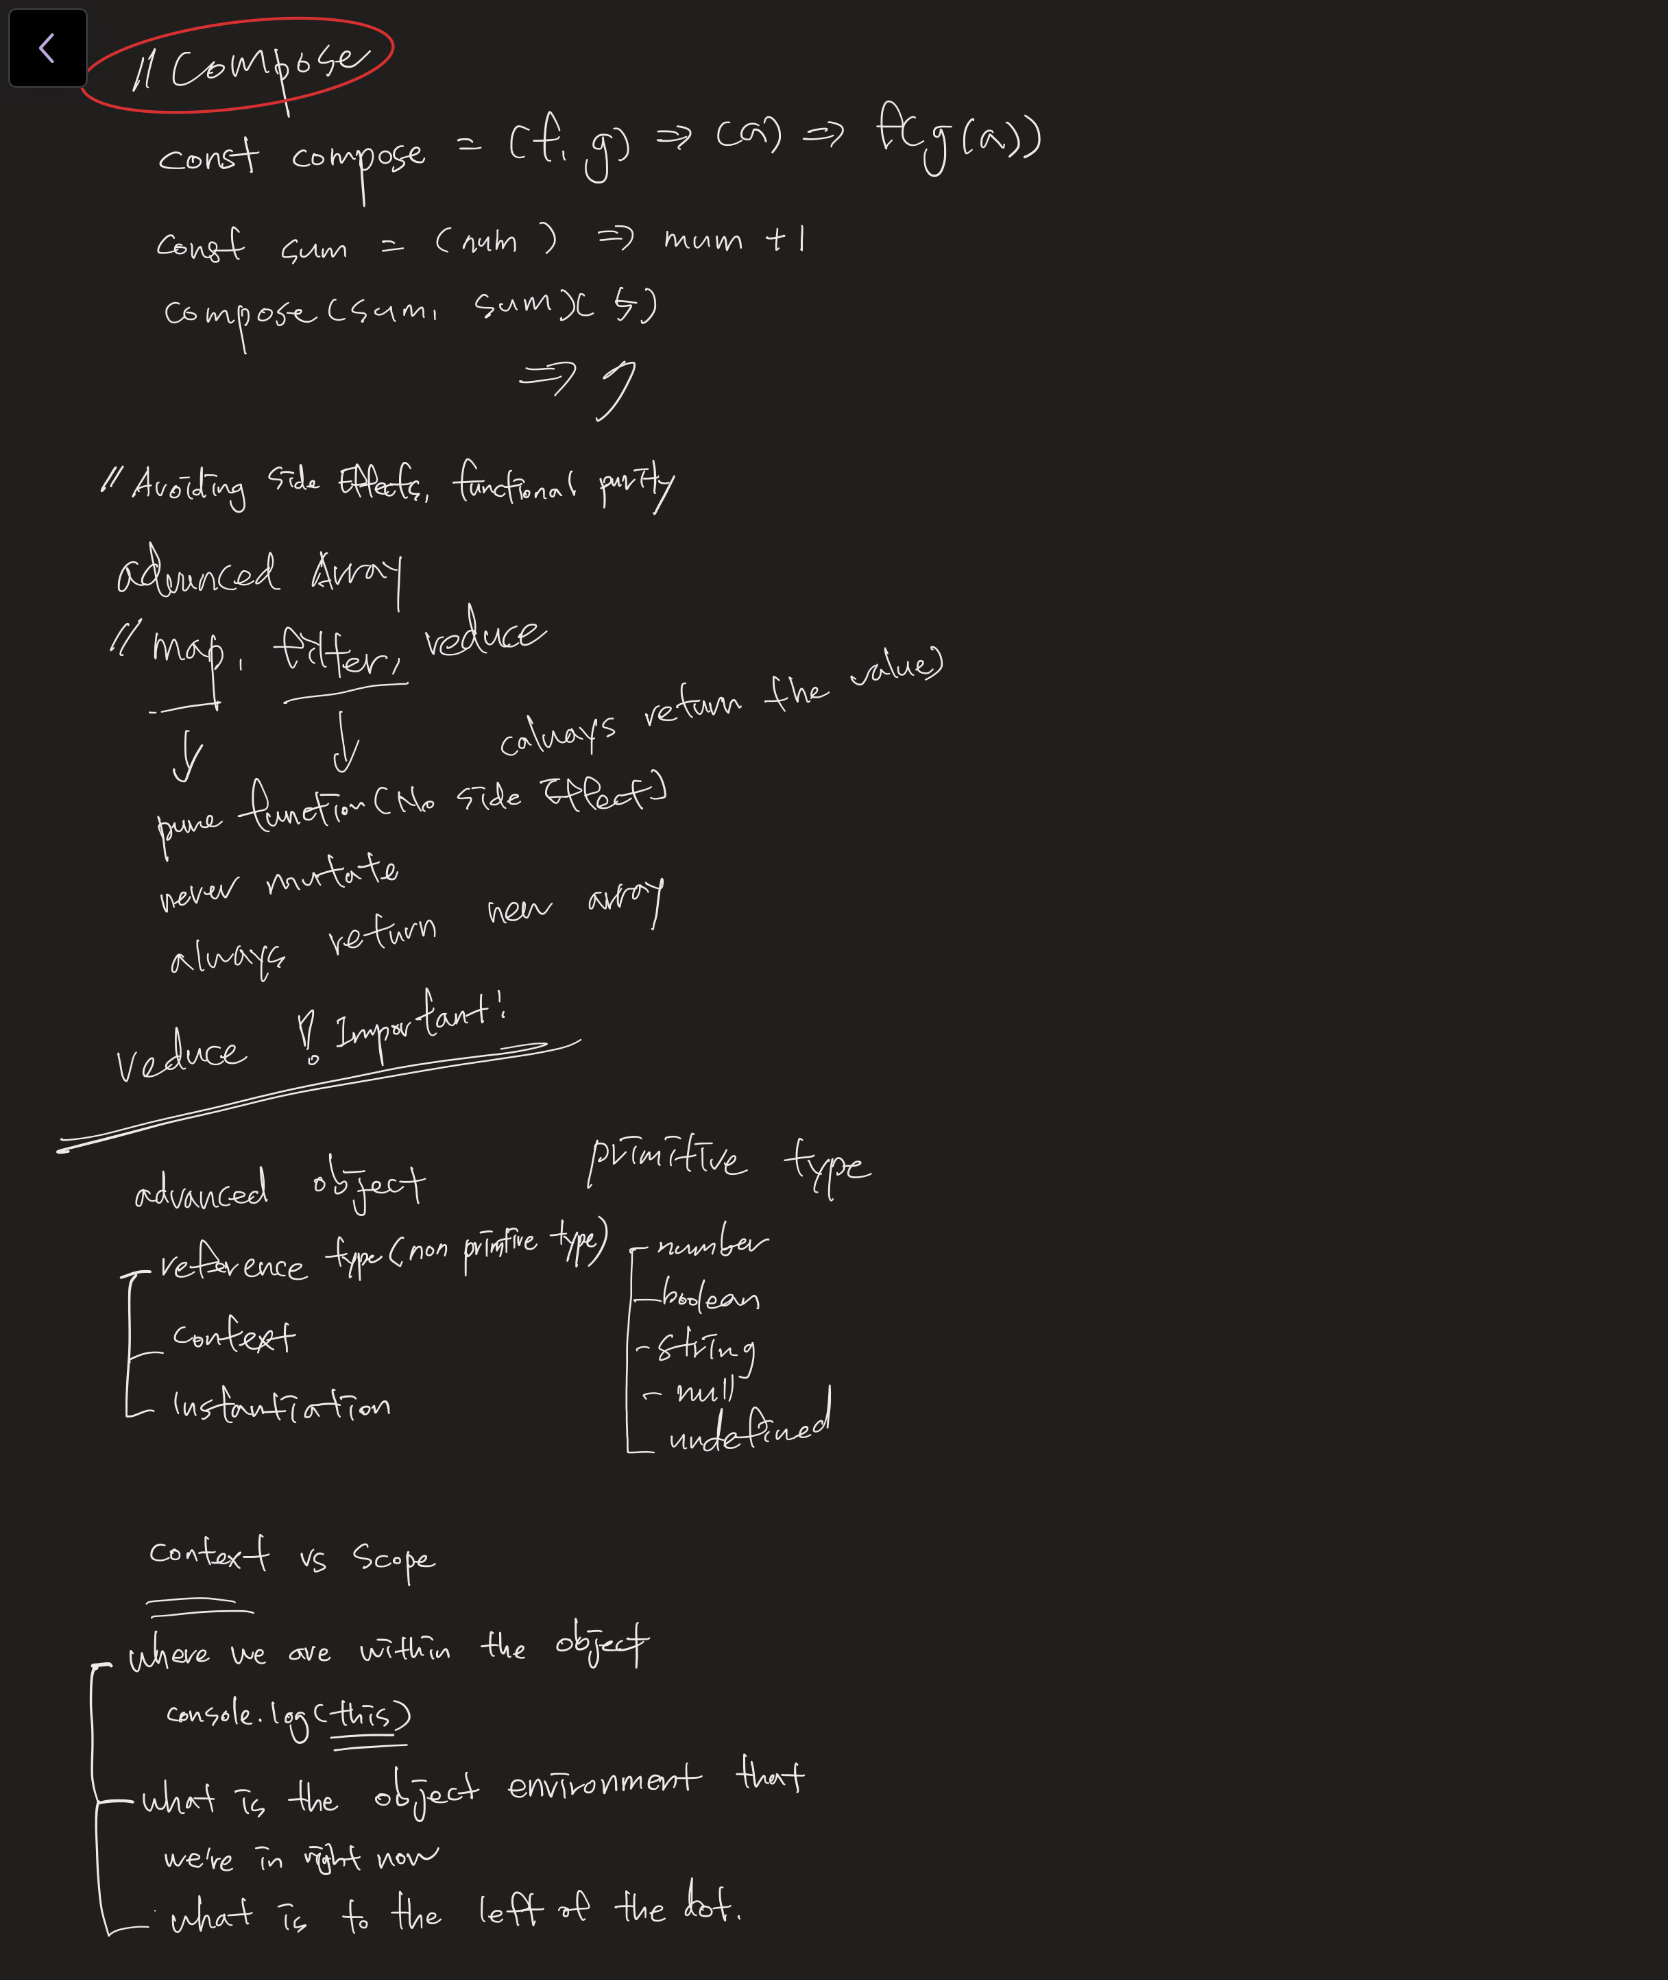 // Compose
const compose = (f, g) => (a) => f(g(a))
const sum = (num) => num + 1
compose(sum, sum)(5)
=> 7
// Avoiding side Effects, functional purity
advanced Array
// map, filter, reduce
(always return the value)
pure function (No side Effect)
never mutate
always return new array
reduce !! Important!
advanced object
primitive type
reference type (non primitive type)
- number
context
- boolean
Instantiation
- string
- null
undefined
context vs Scope
where we are within the object
console.log(this)
what is the object environment that
we're in right now
what is to the left of the dot.